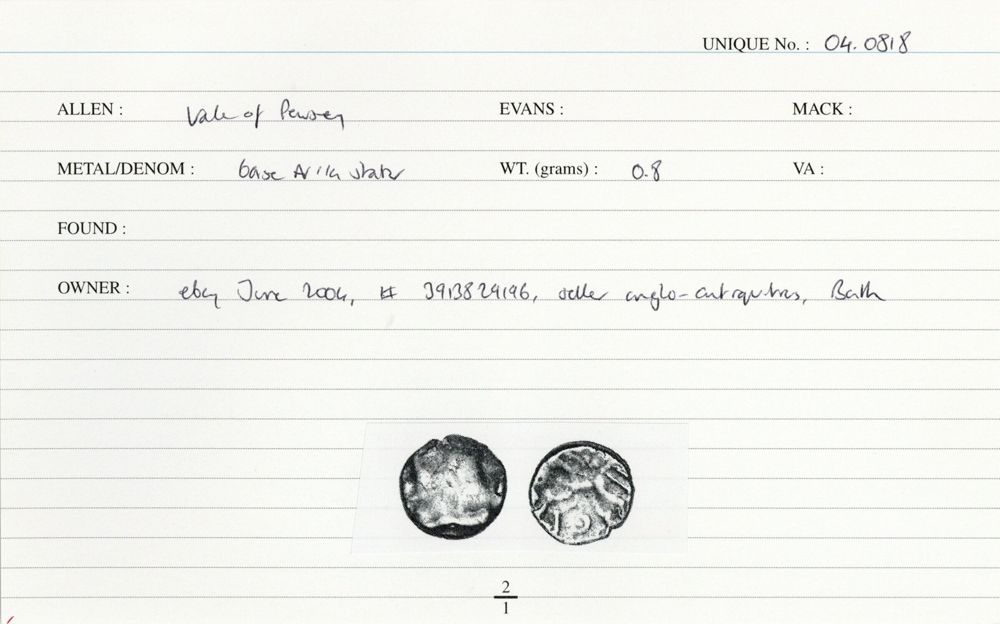 UNIQUE No. : 04.0818
ALLEN : Vale of Pewsey EVANS : MACK :
METAL/DENOM : base AV 1/4 stater WT. (grams) : 0.8 VA :
FOUND :
OWNER : ebay June 2004, # 3913829196, seller anglo-antiquities, Bath
2
1